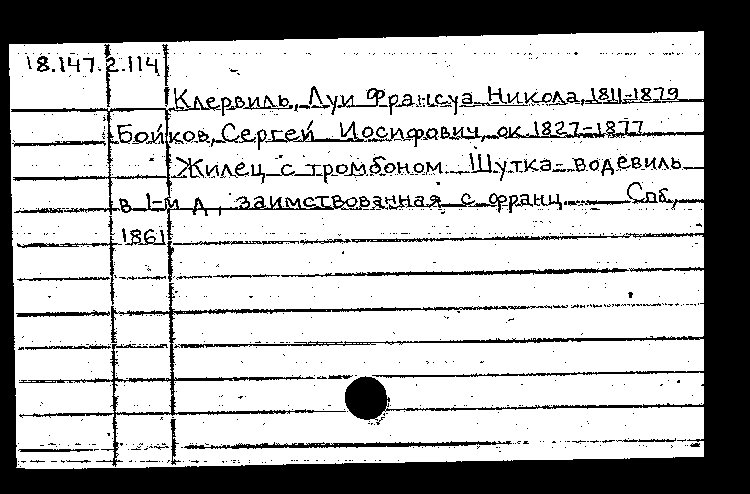 18.147.2.114
Клервиль, Луи Франсуа Никола, 1811-1879
Бойков, Сергей Иосифович, ок. 1827-1877
Жилец с тромбоном. Шутка-водевиль
в 1-м д., заимствованная с франц. Спб.,
1861